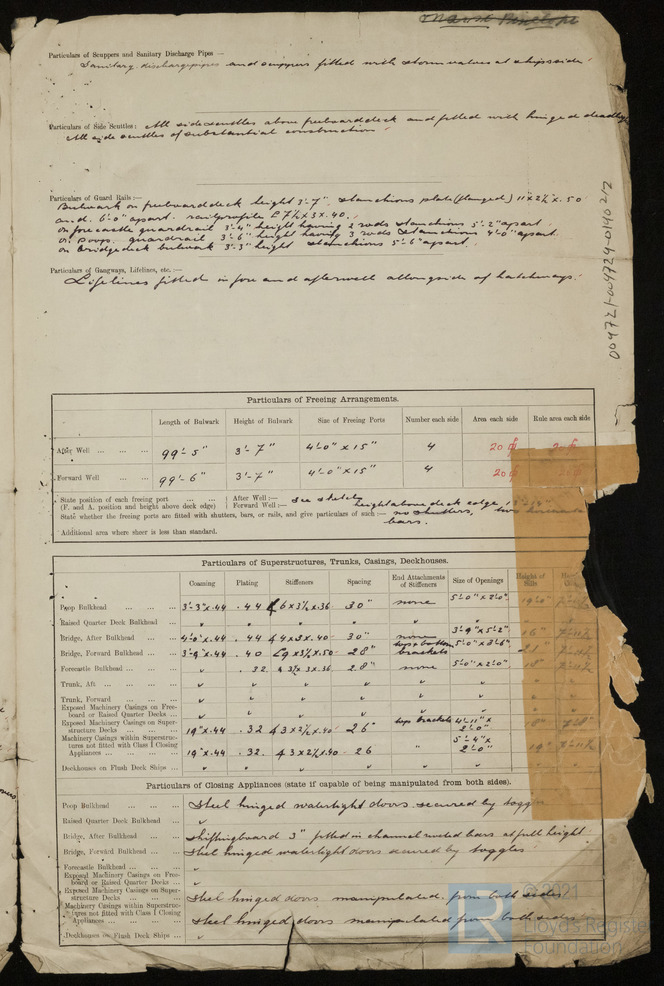 Particulars of Scuppers and Sanitary Discharge Pipes —
Sanitary discharge pipes and scuppers fitted with storm valves at shipsside.
Particulars of Side Scuttles: All sidescuttles above freeboard deck and fitted with hinged deadlights
All side scuttles of substantial construction
Particulars of Guard Rails:—
Bulwark on freeboard deck height 3'-7". Stanchions plate (flanged) 11" x 2½" x .50
and 6'-0" apart. railprofile [ 7½ x 3 x .40.
on forecastle guardrail 3'-4" height having 2 rods stanchions 5'-2" apart.
on poop guardrail 3'-6" height having 3 rods stanchions 4'-0" apart.
on bridgedeck bulwark 3'-3" height stanchions 5'-6" apart.
Particulars of Gangways, Lifelines, etc. :—
Lifelines fitted in fore and afterwell alongside of hatchways.
Particulars of Freeing Arrangements.
Length of Bulwark Height of Bulwark Size of Freeing Ports Number each side Area each side Rule area each side
After Well 99'-5" 3'-7" 4'-0" x 15" 4 20
Forward Well 99'-6" 3'-7" 4'-0" x 15" 4 20
State position of each freeing port (F. and A. position and height above deck edge) After Well:— See sketch
Forward Well:— height above deck edge
State whether the freeing ports are fitted with shutters, bars, or rails, and give particulars of such:— no shutters, two horizontal bars.
Additional area where sheer is less than standard.
Particulars of Superstructures, Trunks, Casings, Deckhouses.
Coaming Plating Stiffeners Spacing End Attachments of Stiffeners Size of Openings Height of Sills
Poop Bulkhead 3'-3" x .44 .44 6 x 3½ x .36 30" none 5'-0" x 2'-0"
Raised Quarter Deck Bulkhead
Bridge, After Bulkhead 4'-0" x .44 .44 4 x 3 x .40 30" none 3'-9" x 5'-2" 16"
Bridge, Forward Bulkhead 3'-9" x .44 .40 9 x 3½ x .50 28" top & bottom brackets 5'-0" x 3'-6"
Forecastle Bulkhead .32 x 3 x .36 28" none 5'-0" x 2'-0" 18"
Trunk, Aft
Trunk, Forward
Exposed Machinery Casings on Freeboard or Raised Quarter Decks
Exposed Machinery Casings on Superstructure Decks 19" x .44 .32 3 x 2½ x .40 26" top brackets 4'-11" x 2'-0"
Machinery Casings within Superstructures not fitted with Class I Closing Appliances 19" x .44 .32 3 x 2½ x .40 26 " 5'-4" x 2'-0"
Deckhouses on Flush Deck Ships
Particulars of Closing Appliances (state if capable of being manipulated from both sides).
Poop Bulkhead Steel hinged watertight doors secured by
Raised Quarter Deck Bulkhead
Bridge, After Bulkhead Shiftingboard 3" fitted in channel bars at full height
Bridge, Forward Bulkhead Steel hinged watertight doors secured by toggles
Forecastle Bulkhead
Exposed Machinery Casings on Freeboard or Raised Quarter Decks
Exposed Machinery Casings on Superstructure Decks Steel hinged doors manipulated from both sides
Machinery Casings within Superstructures not fitted with Class I Closing Appliances Steel hinged doors manipulated from both sides
Deckhouses on Flush Deck Ships
004721-004724-0140 2/2
LR
© 2021
Lloyd's Register
Foundation